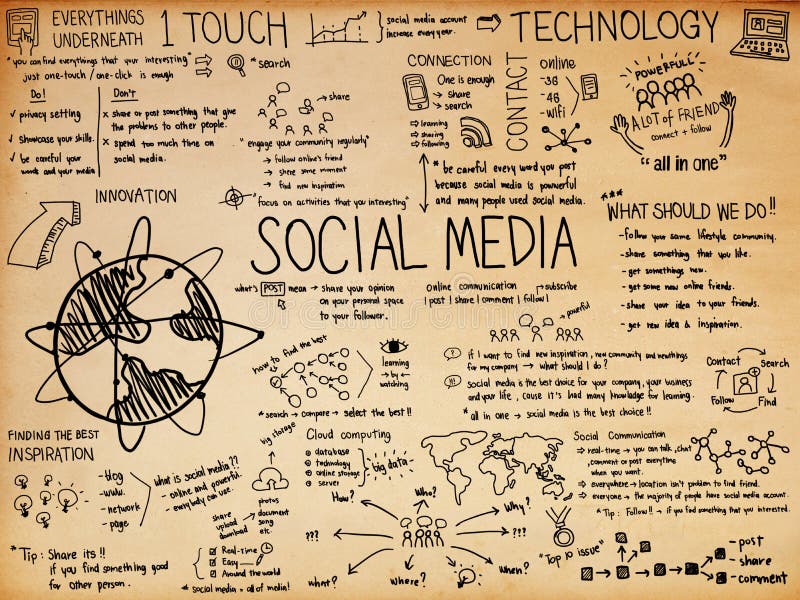 EVERYTHINGS
UNDERNEATH
1 TOUCH
social media account
increase every year.
TECHNOLOGY
"you can find everythings that your interesting"
just one-touch / one-click is enough
* search
Do!
Don't
✓ privacy setting
✓ showcase your skills.
✓ be careful your
words and your media
x share or post something that give
the problems to other people.
x spend too much time on
social media.
→ share
"engage your community regularly"
→ follow online's friend
→ share some moment
→ find new inspiration
"focus on activities that you interesting"
CONNECTION
One is enough
→ share
→ search
→ learning
→ sharing
→ following
CONTACT
online
-3G
-4G
-wifi
POWERFULL
A LOT of FRIEND
connect + follow
"all in one"
* be careful every word you post
because social media is powerful
and many people used social media.
INNOVATION
SOCIAL MEDIA
*** WHAT SHOULD WE DO!!
- follow your same lifestyle community.
- share something that you like.
- get something new.
- get some new online friends.
- share your idea to your friends.
- get new idea & inspiration.
what's POST mean → share your opinion
on your personal space
to your follower.
online communication → subscribe
| post | share | comment | follow |
→ powerful
how to find the best
learning
↳ by
↳ watching
* search → compare → select the best !!
? if I want to find new inspiration, new community and newthings
for my company → what should I do?
!!! social media is the best choice for your company, your business
and your life, cause it's had many knowledge for learning.
* all in one → social media is the best choice !!
Contact
Search
Follow
Find
FINDING THE BEST
INSPIRATION
- blog
- www.
- network
- page
what is social media??
- online and powerful.
- everybody can use.
big storage
share
upload
download
photos
document
song
etc.
Cloud computing
database
technology
online storage
server
big data
Social Communication
→ real-time → you can talk, chat
comment or post everything
when you want.
→ everywhere → location isn't problem to find friend.
→ everyone → the majority of people have social media account.
* Tip : Follow!! → if you find something that you interested.
How?
Who?
Why?
???
???
what?
Where?
When?
*Tip : Share its !!
if you find something good
for other person.
Real-Time
Easy
Around the world
* social media = all of media!
"Top 10 issue"
- post
- share
- comment